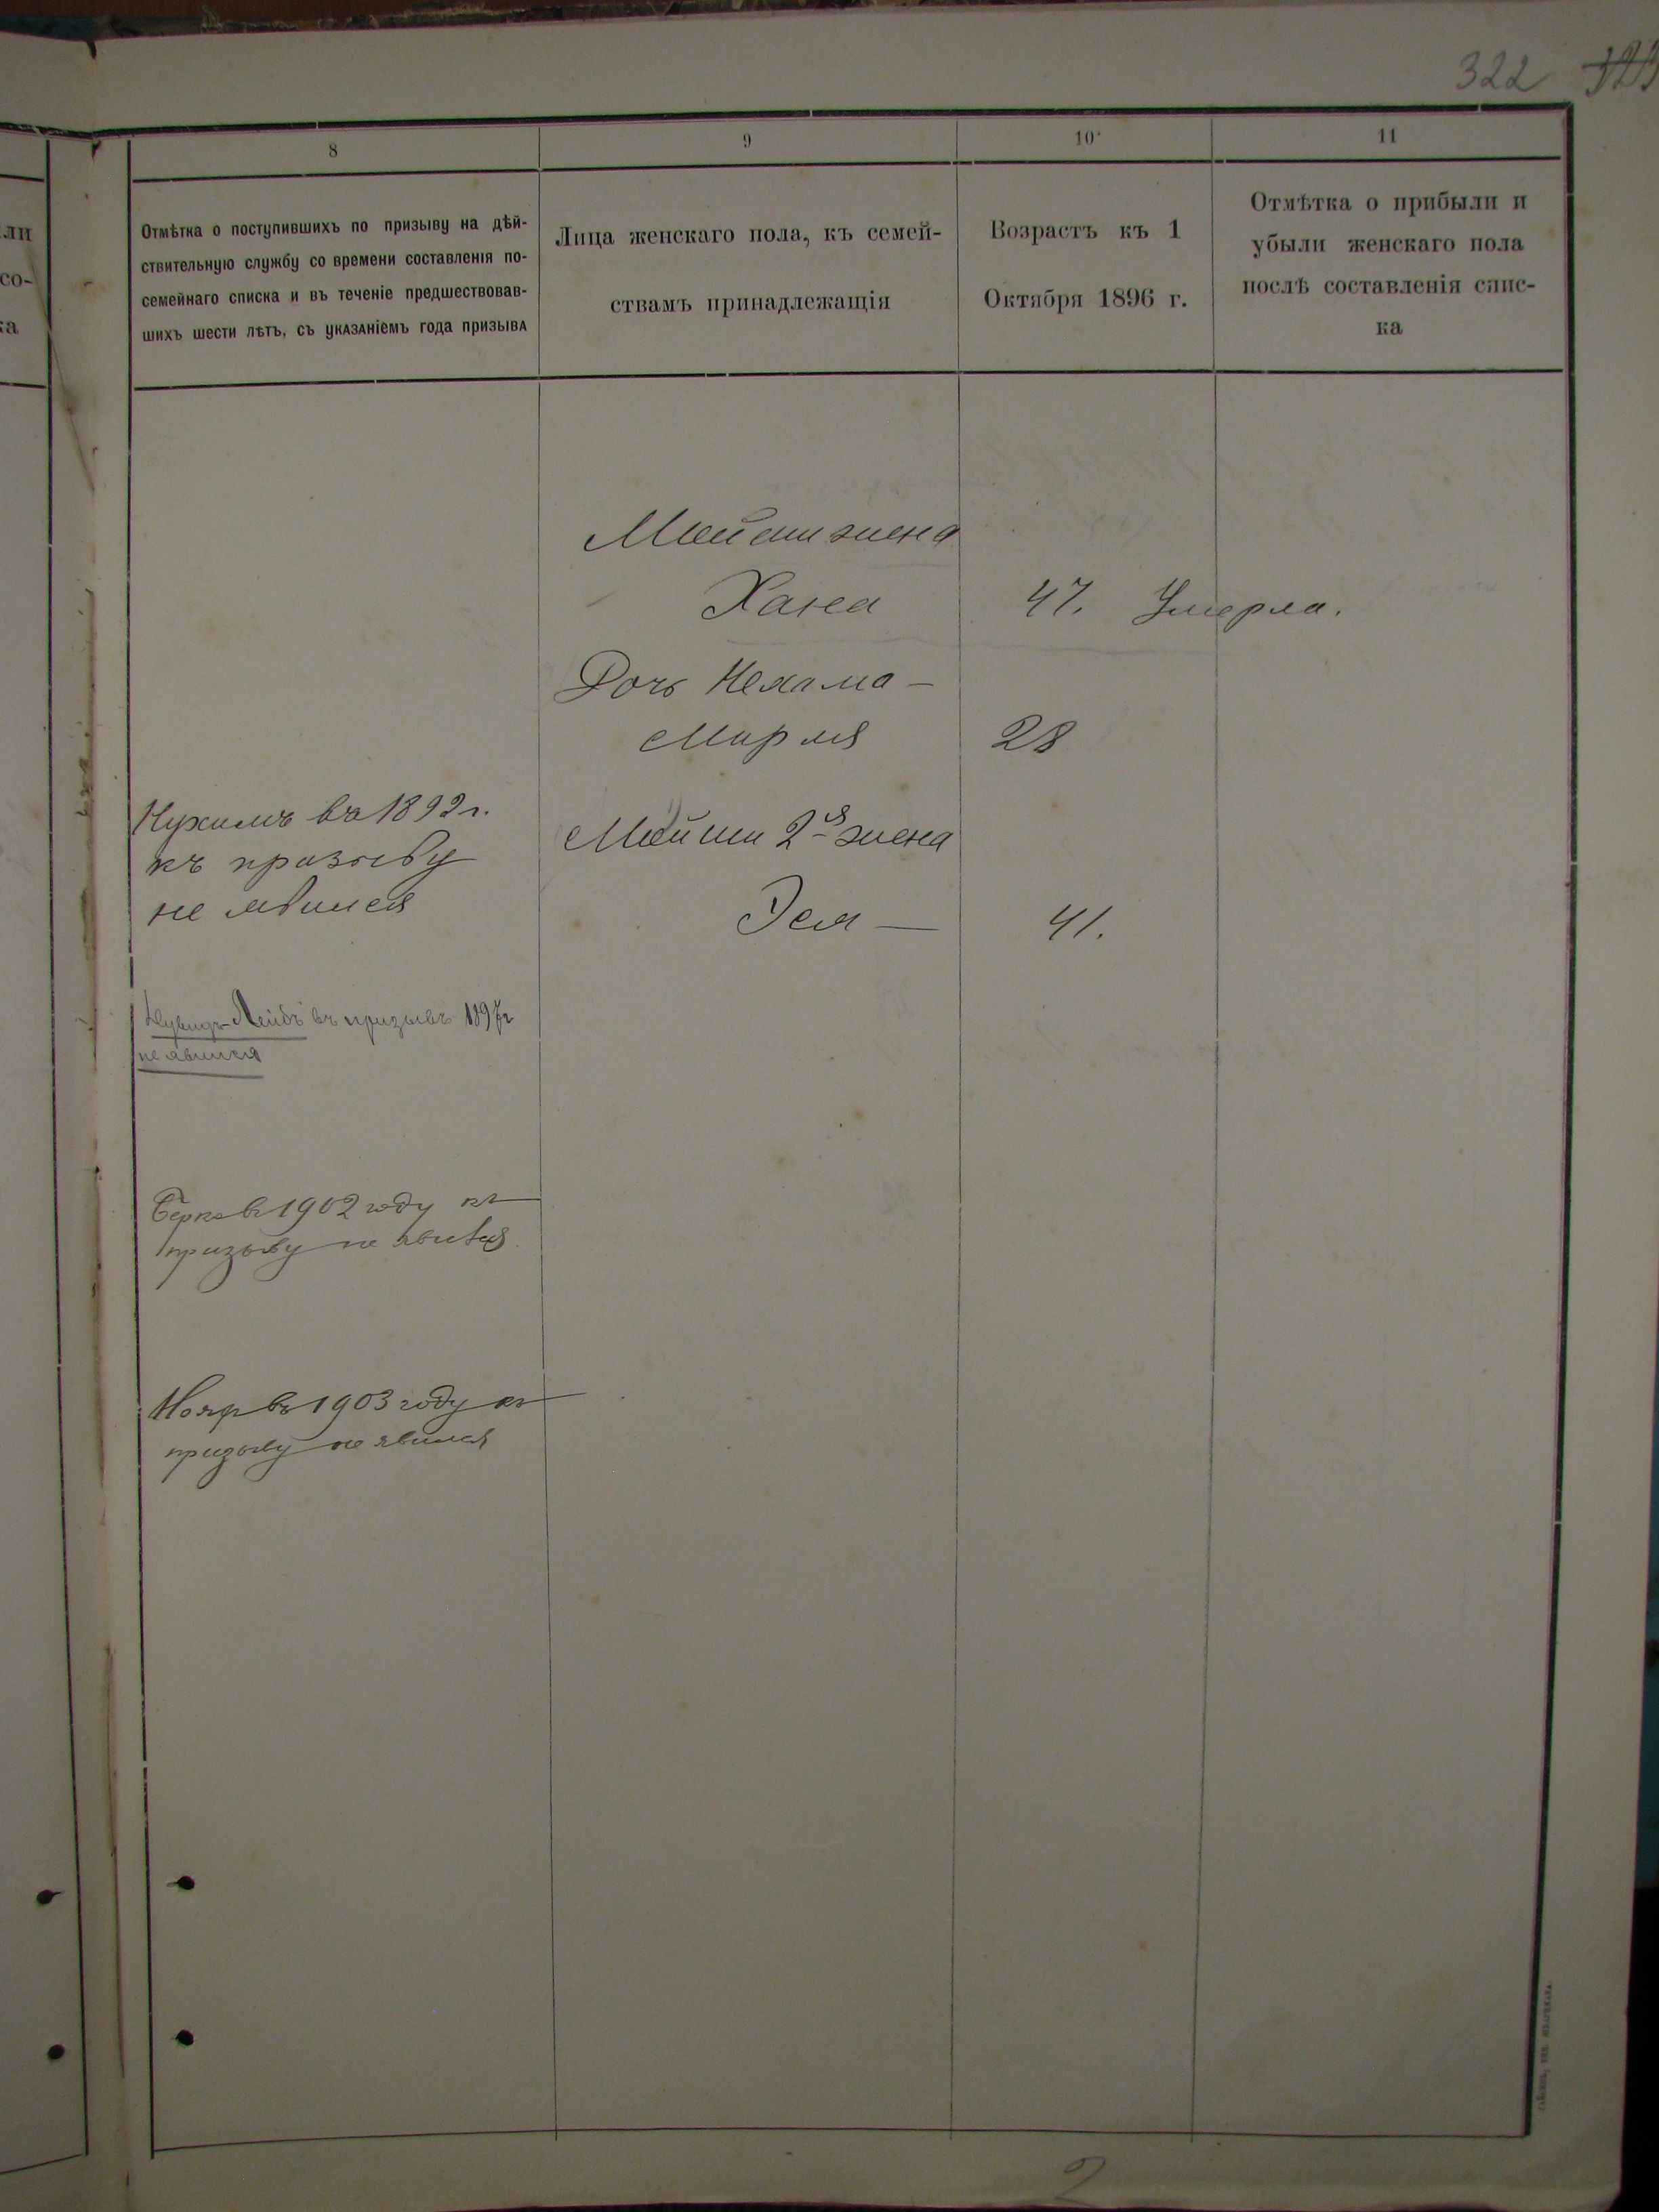 322 323
ли
со-
ка
8
9
10
11
Отмѣтка о поступившихъ по призыву на дѣй-
ствительную службу со времени составленія по-
семейнаго списка и въ теченіе предшествовав-
шихъ шести лѣтъ, съ указаніемъ года призыва
Лица женскаго пола, къ семей-
ствамъ принадлежащія
Возрастъ къ 1
Октября 1896 г.
Отмѣтка о прибыли и
убыли женскаго пола
послѣ составленія спис-
ка
жена
Хана
47. Умерла.
Дочь Нехама-
Мирля
28
Нухимъ въ 1892 г.
къ призыву
не явился
2я жена
Эся —
41.
Дувидъ-Лейбъ въ призывъ 1897 г
не явился
Берко въ 1902 году къ
призыву не явился
въ 1903 году къ
призыву не явился
2